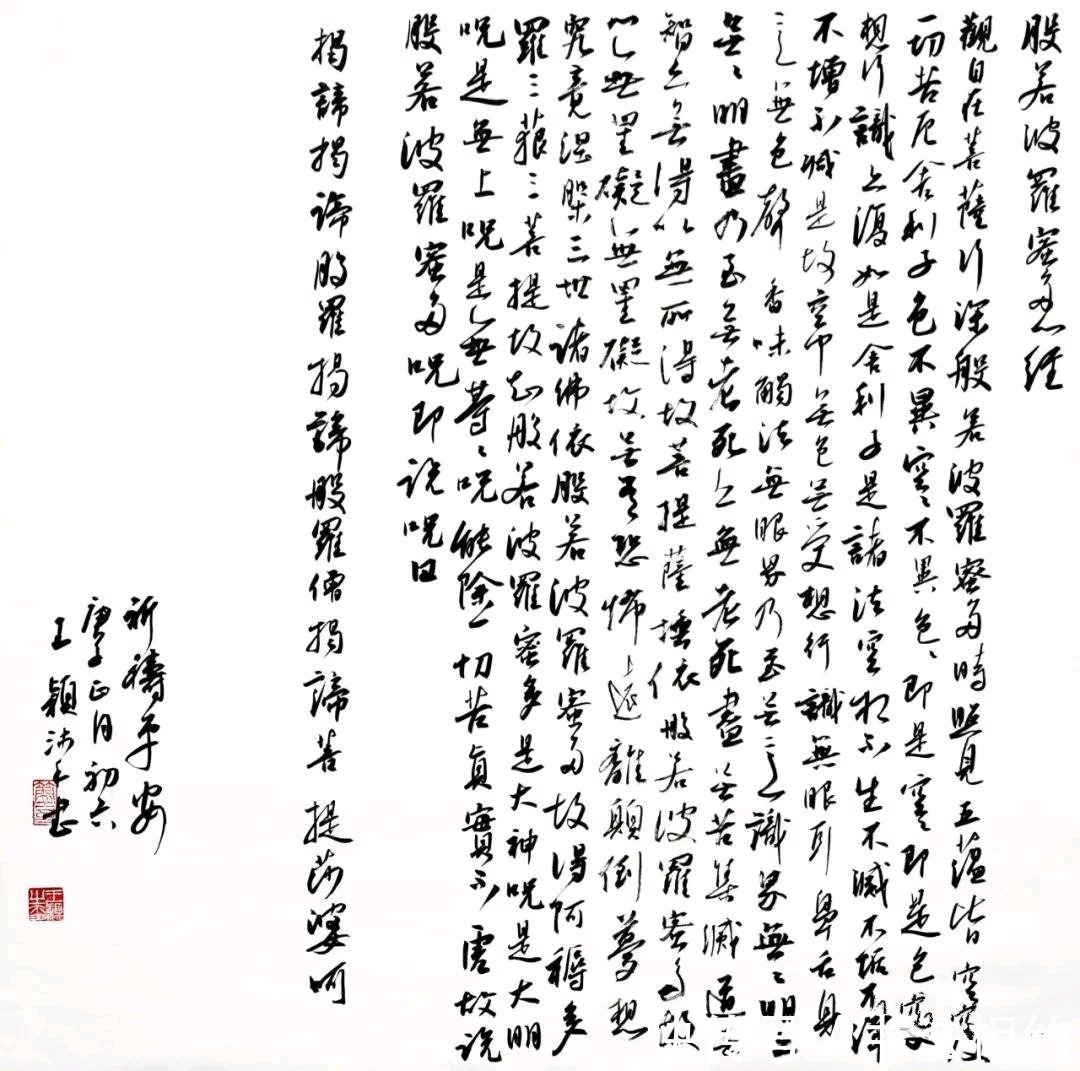 般若波羅蜜多心經
觀自在菩薩行深般若波羅蜜多時照見五蘊皆空度
一切苦厄舍利子色不異空〻不異色〻即是空〻即是色受
想行識亦復如是舍利子是諸法空相不生不滅不垢不淨
不增不減是故空中無色無受想行識無眼耳鼻舌身
意無色聲香味觸法無眼界乃至無意識界無〻明亦
無〻明盡乃至無老死亦無老死盡無苦集滅道無
智亦無得以無所得故菩提薩埵依般若波羅蜜多故
心無罣礙無罣礙故無有恐怖遠離顛倒夢想
究竟涅槃三世諸佛依般若波羅蜜多故得阿耨多
羅三藐三菩提故知般若波羅蜜多是大神咒是大明
咒是無上咒是無等〻咒能除一切苦真實不虛故說
般若波羅蜜多咒即說咒曰
揭諦揭諦般羅揭諦般羅僧揭諦菩提莎婆呵
祈禱平安
庚子正月初六
王穎沐手書